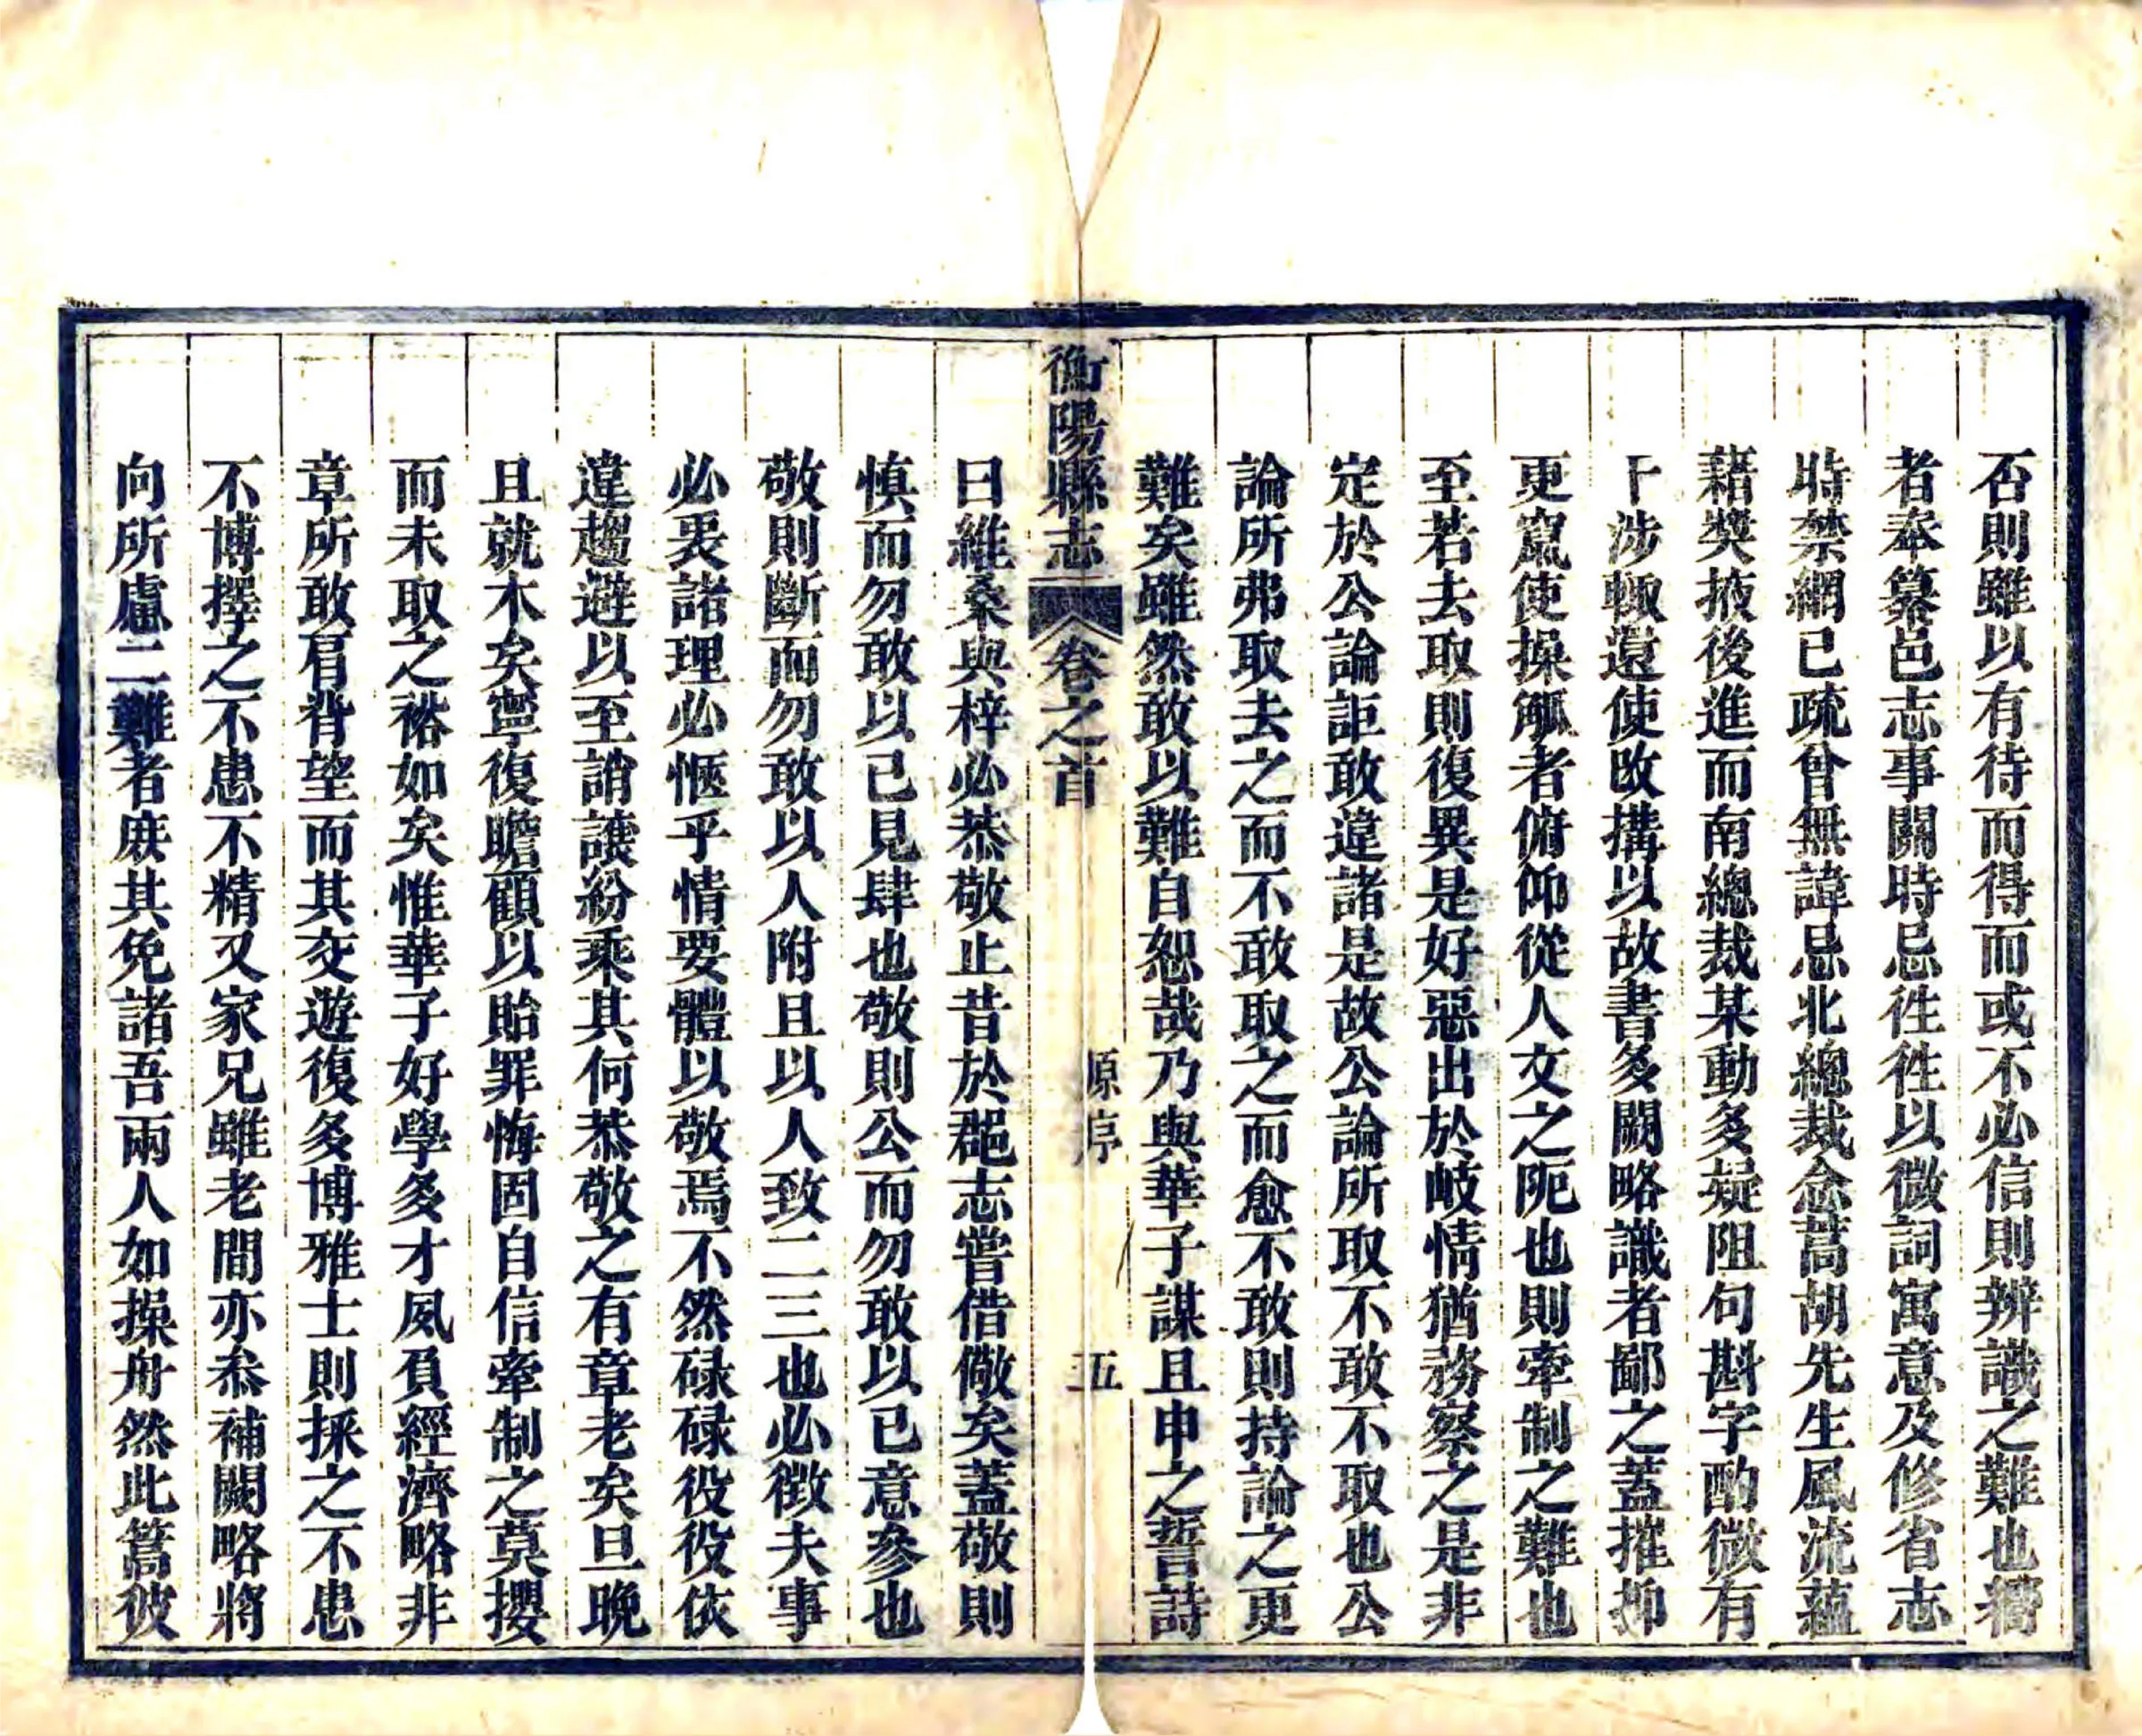 否則雖以有待而得而或不必信則辨識之難也疇
者奉纂邑志事關時忌徃徃以微詞寓意及修省志
時禁網已疏曾無諱忌北總裁念蒿胡先生風流蘊
藉奬掖後進而南總裁某動多疑阻句斟字酌微有
干涉輙還使改搆以故書多闕略識者鄙之蓋摧抑
更竄使操觚者俯仰從人文之阨也則牽制之難也
至若去取則復異是好惡出於岐情猶務察之是非
定於公論詎敢違諸是故公論所取不敢不取也公
論所弗取去之而不敢取之而愈不敢則持論之更
難矣雖然敢以難自恕哉乃與華子謀且申之誓詩
衡陽縣志 卷之首 原序 五
曰維桑與梓必恭敬止昔於郡邑志嘗借儆矣蓋敬則
慎而勿敢以已見肆也敬則公而勿敢以已意參也
敬則斷而勿敢以人附且以人致二三也必徴夫事
必衷諸理必愜乎情要體以敬焉不然碌碌役役依
違趨避以至誚讓紛乘其何恭敬之有章老矣旦晚
且就木矣寧復瞻顧以貽罪悔固自信牽制之莫攖
而未取之裕如矣惟華子好學多才夙負經濟略非
章所敢肩背望而其交遊復多博雅士則採之不患
不博擇之不患不精又家兄雖老間亦叅補闕略將
向所慮二難者庶其免諸吾兩人如操舟然此篙彼